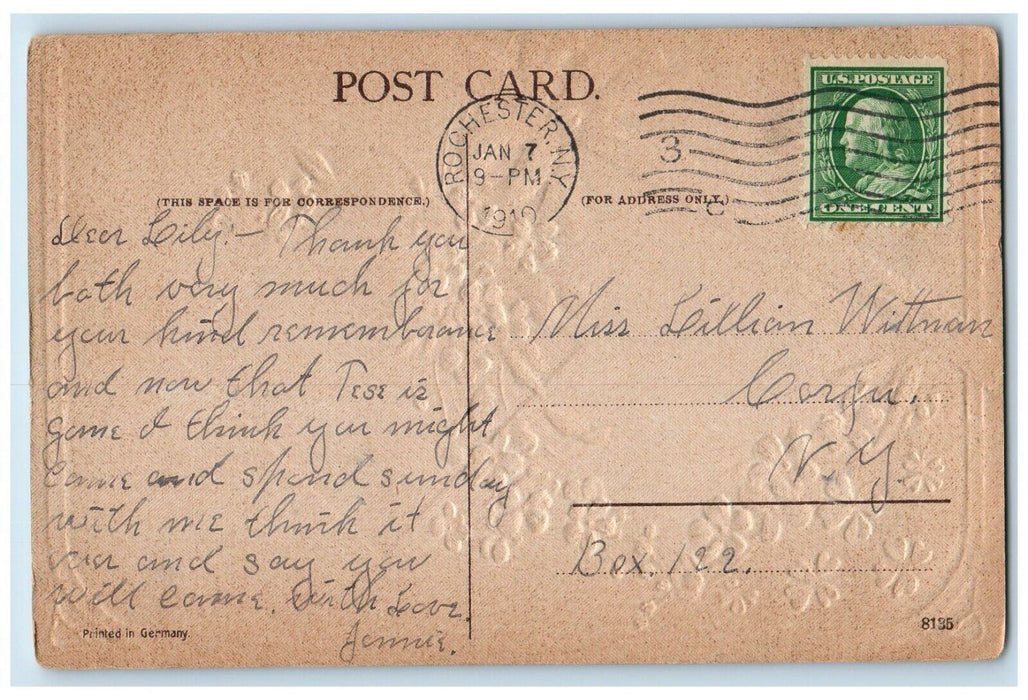 POST CARD.
ROCHESTER, N.Y.
JAN 7
9-PM
1910
3
U.S. POSTAGE
ONE CENT
(THIS SPACE IS FOR CORRESPONDENCE.)
(FOR ADDRESS ONLY.)
Dear Lily:- Thank you
both very much for
your kind remembrance
and now that Tess is
gone I think you might
come and spend sunday
with me think it
over and say you
will come. With Love.
Jennie.
Miss Lillian Wittman
Corfu.
N.Y.
Box. 122.
Printed in Germany.
8135